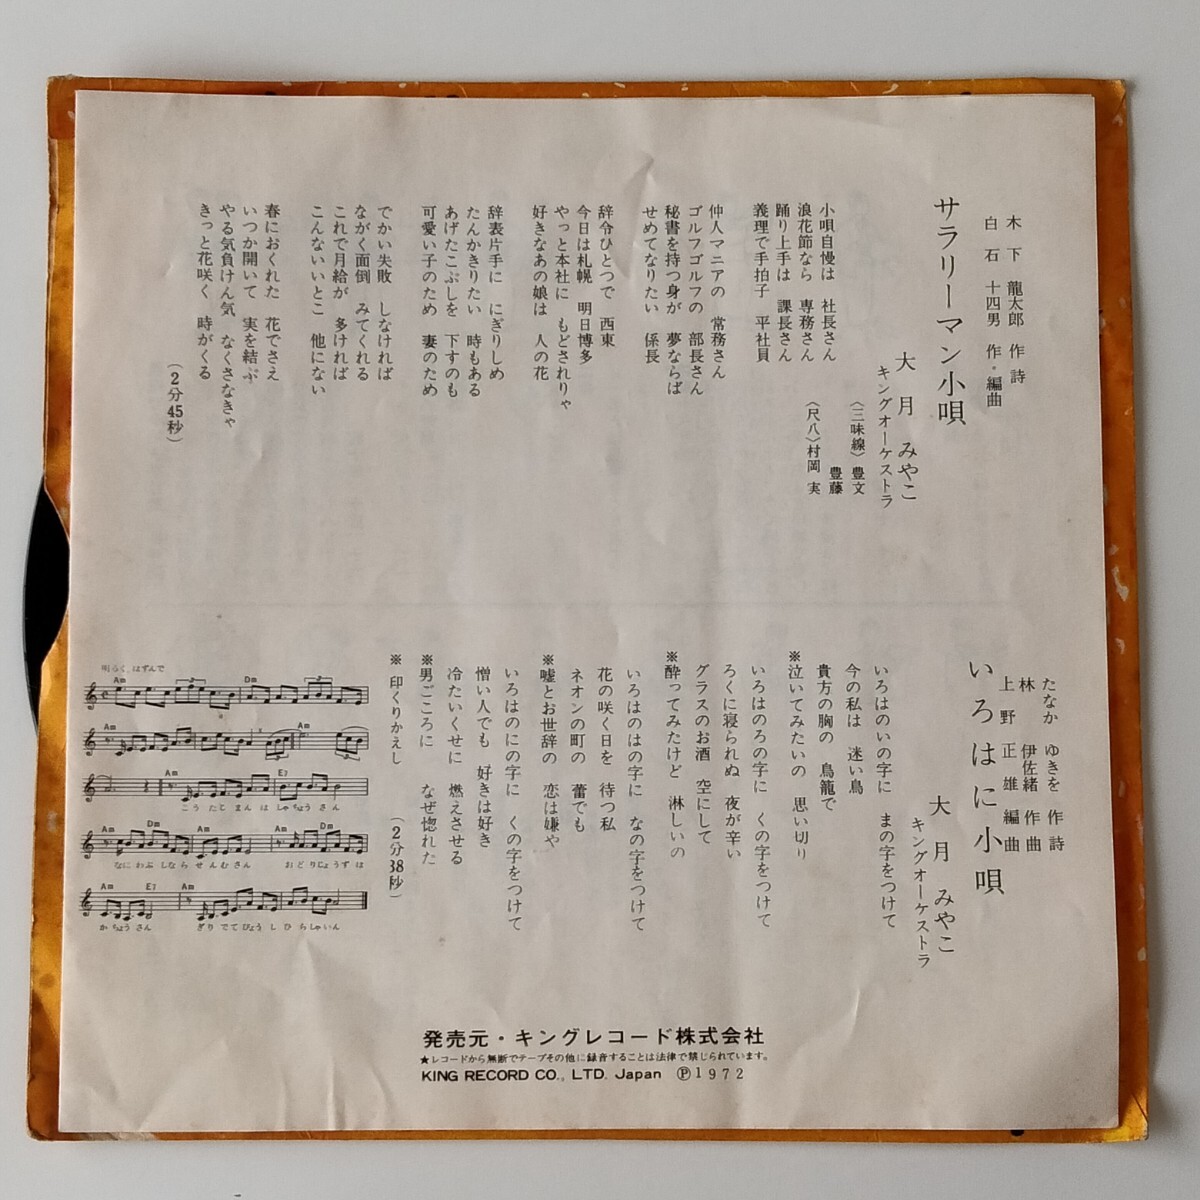 サラリーマン小唄
木下 龍太郎 作詩
白石 十四男 作・編曲
大月 みやこ
キングオーケストラ
〈三味線〉豊文
豊藤
〈尺八〉村岡 実
小唄自慢は 社長さん
浪花節なら 専務さん
踊り上手は 課長さん
義理で手拍子 平社員
仲人マニアの 常務さん
ゴルフゴルフの 部長さん
秘書を持つ身が 夢ならば
せめてなりたい 係長
辞令ひとつで 西東
今日は札幌 明日博多
やっと本社に もどされりゃ
好きなあの娘は 人の花
辞表片手に にぎりしめ
たんかきりたい 時もある
あげたこぶしを 下すのも
可愛い子のため 妻のため
でかい失敗 しなければ
ながく面倒 みてくれる
これで月給が 多ければ
こんないいとこ 他にない
春におくれた 花でさえ
いつか開いて 実を結ぶ
やる気負けん気 なくさなきゃ
きっと花咲く 時がくる
(2分45秒)
いろはに小唄
たなか ゆきを 作詩
林 伊佐緒 作曲
上野 正雄 編曲
大月 みやこ
キングオーケストラ
いろはのいの字に まの字をつけて
今の私は 迷い鳥
貴方の胸の 鳥籠で
※泣いてみたいの 思い切り
いろはのろの字に くの字をつけて
ろくに寝られぬ 夜が辛い
グラスのお酒 空にして
※酔ってみたけど 淋しいの
いろはのはの字に なの字をつけて
花の咲く日を 待つ私
ネオンの町の 蕾でも
※嘘とお世辞の 恋は嫌や
いろはのにの字に くの字をつけて
憎い人でも 好きは好き
冷たいくせに 燃えさせる
※男ごころに なぜ惚れた
※印くりかえし
(2分38秒)
明るく はずんで
Am Dm
Am Am
Am E7
こうたじまんは しゃちょうさん
Am Dm Am Dm
なにわぶしなら せんむさん おどりじょうずは
Am E7 Am
かちょうさん ぎりでてびょうし ひらしゃいん
発売元・キングレコード株式会社
★レコードから無断でテープその他に録音することは法律で禁じられています。
KING RECORD CO., LTD. Japan Ⓟ1972